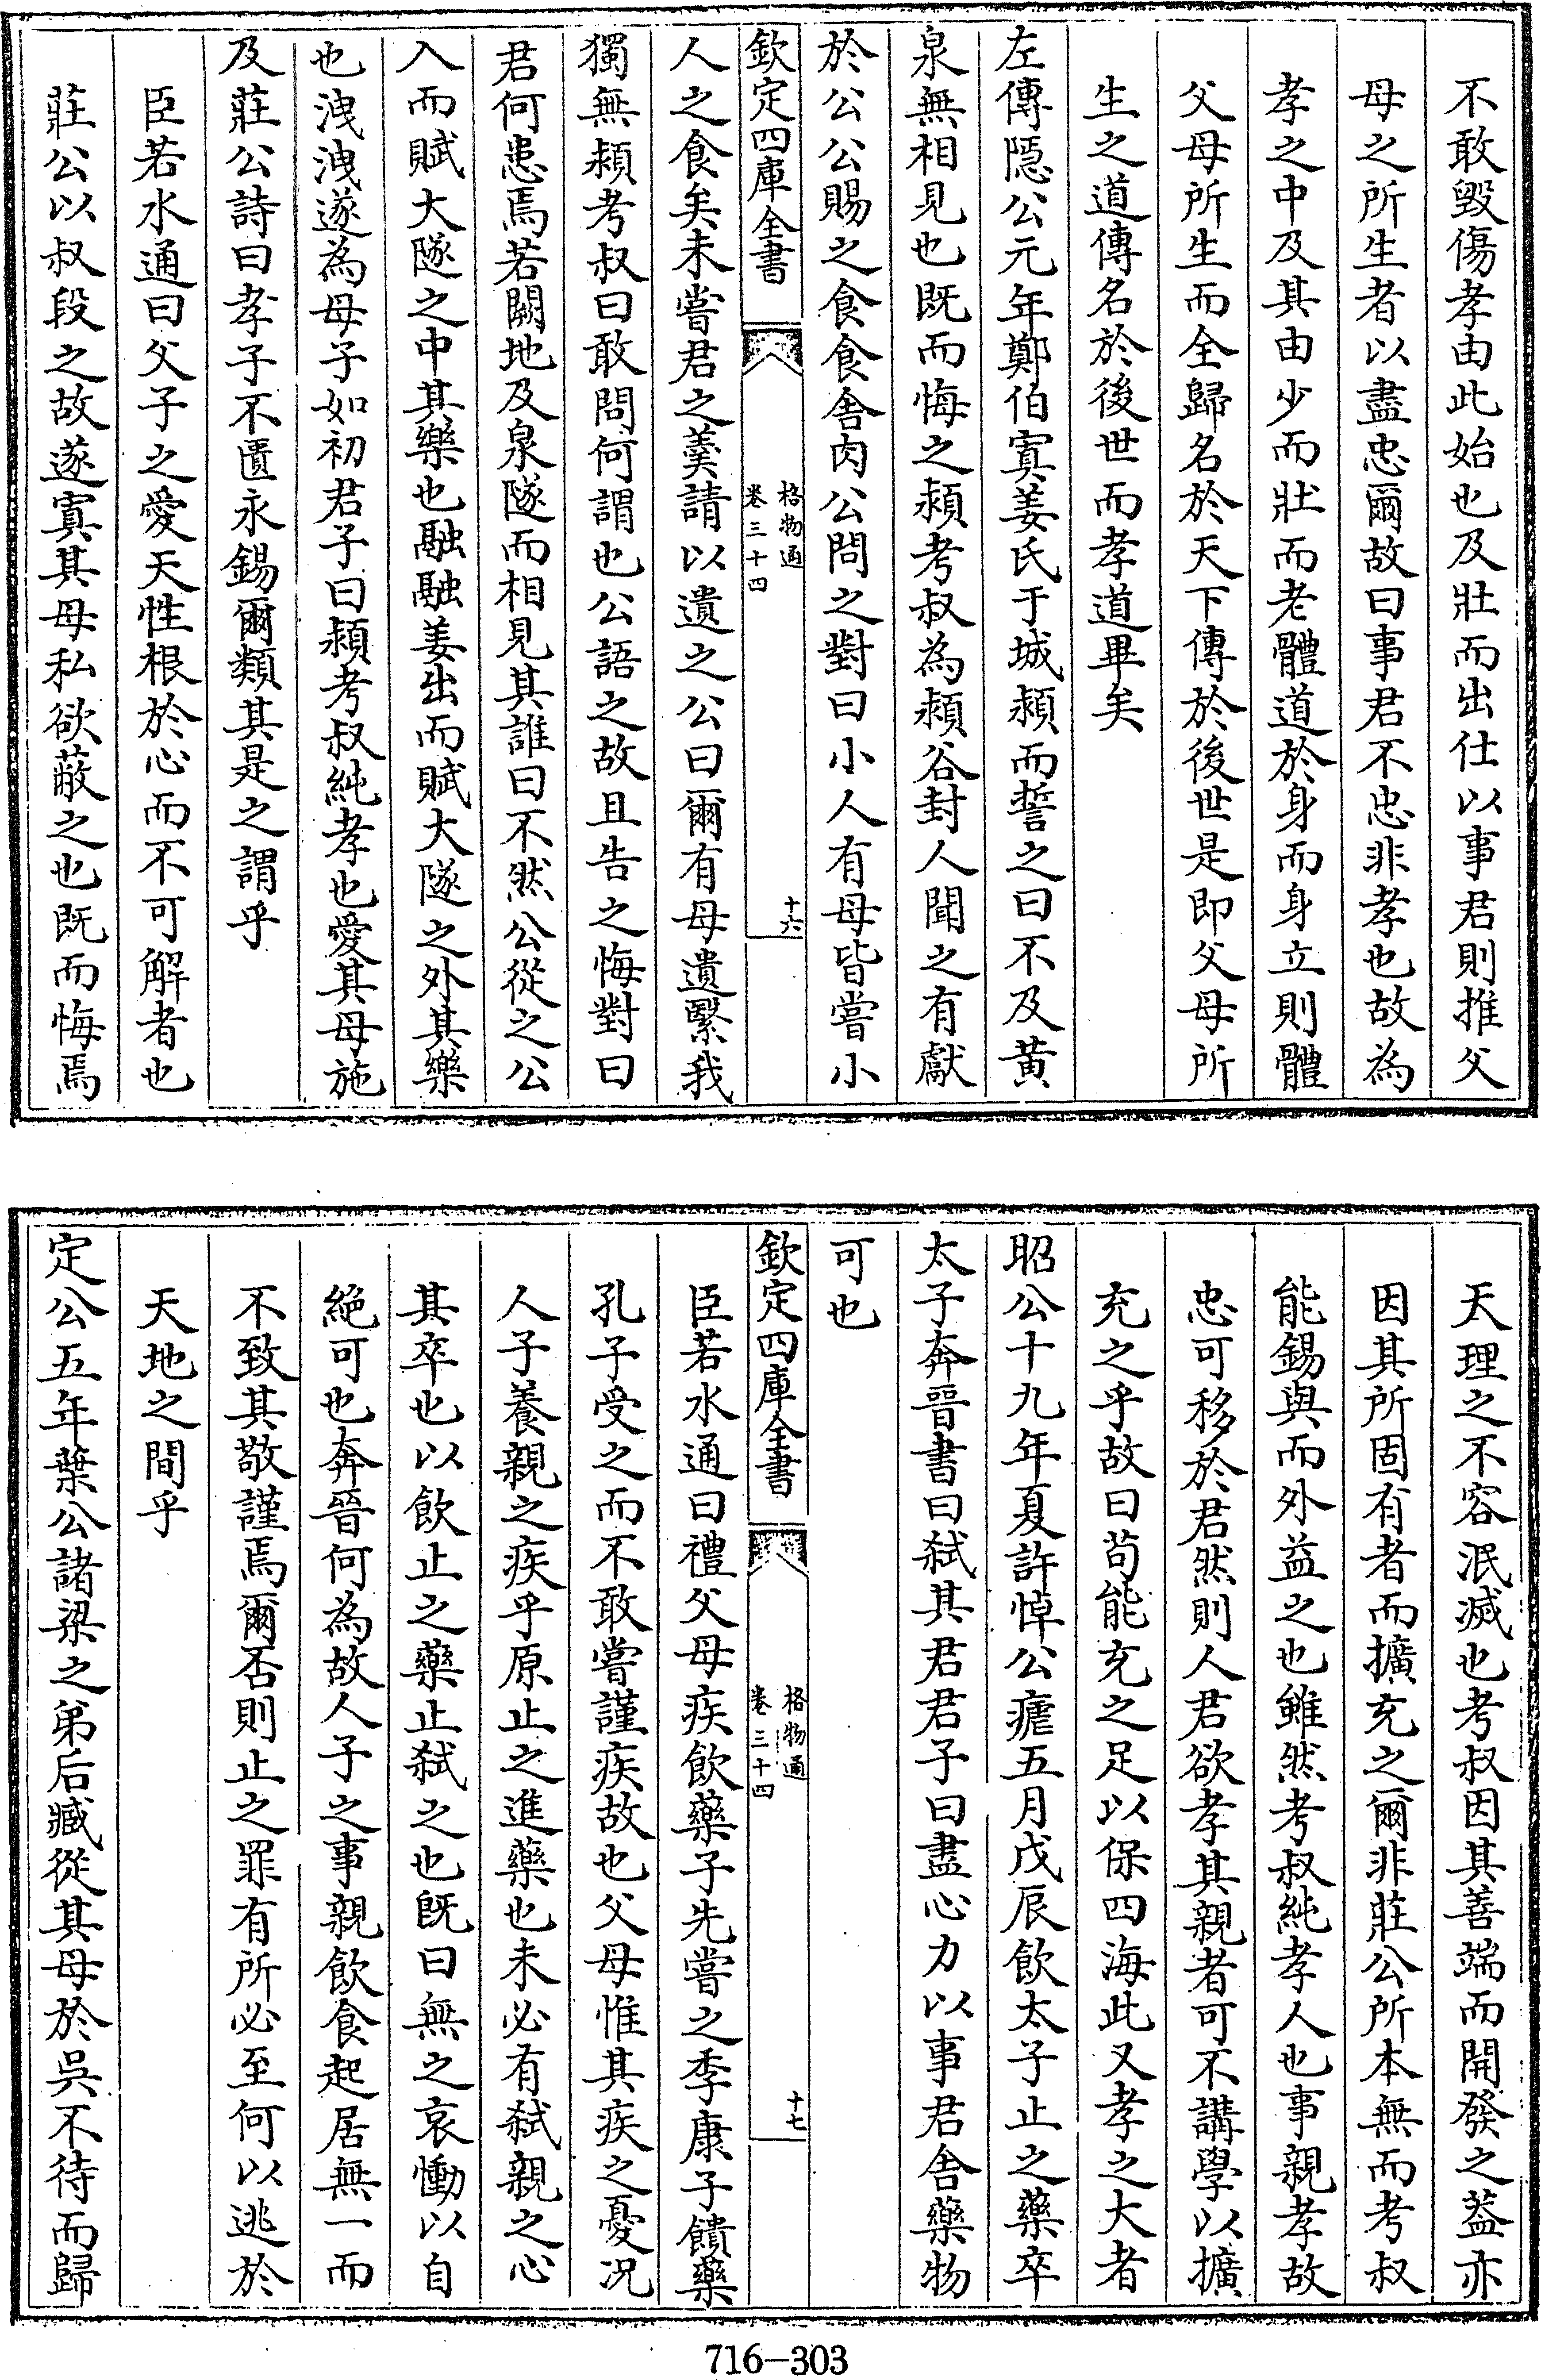 不敢毀傷孝由此始也及壯而出仕以事君則推父
母之所生者以盡忠爾故曰事君不忠非孝也故為
孝之中及其由少而壯而老體道於身而身立則體
父母所生而全歸名於天下傳於後世是即父母所
生之道傳名於後世而孝道畢矣
左傳隠公元年鄭伯寘姜氏于城潁而誓之曰不及黃
泉無相見也既而悔之潁考叔為潁谷封人聞之有獻
於公公賜之食食舍肉公問之對曰小人有母皆嘗小
欽定四庫全書
格物通
卷三十四
十六
人之食矣未嘗君之羮請以遺之公曰爾有母遺繄我
獨無潁考叔曰敢問何謂也公語之故且告之悔對曰
君何患焉若闕地及泉隧而相見其誰曰不然公從之公
入而賦大隧之中其樂也融融姜出而賦大隧之外其樂
也洩洩遂為母子如初君子曰潁考叔純孝也愛其母施
及莊公詩曰孝子不匱永錫爾類其是之謂乎
臣若水通曰父子之愛天性根於心而不可解者也
莊公以叔段之故遂寘其母私欲蔽之也既而悔焉
天理之不容泯滅也考叔因其善端而開發之葢亦
因其所固有者而擴充之爾非莊公所本無而考叔
能錫與而外益之也雖然考叔純孝人也事親孝故
忠可移於君然則人君欲孝其親者可不講學以擴
充之乎故曰苟能充之足以保四海此又孝之大者
昭公十九年夏許悼公瘧五月戊辰飲太子止之藥卒
太子奔晉書曰弑其君君子曰盡心力以事君舍藥物
可也
欽定四庫全書
格物通
卷三十四
十七
臣若水通曰禮父母疾飲藥子先嘗之季康子饋藥
孔子受之而不敢嘗謹疾故也父母惟其疾之憂况
人子養親之疾乎原止之進藥也未必有弑親之心
其卒也以飲止之藥止弑之也既曰無之哀慟以自
絕可也奔晉何為故人子之事親飲食起居無一而
不致其敬謹焉爾否則止之罪有所必至何以逃於
天地之間乎
定公五年葉公諸梁之弟后臧從其母於吳不待而歸
716-303